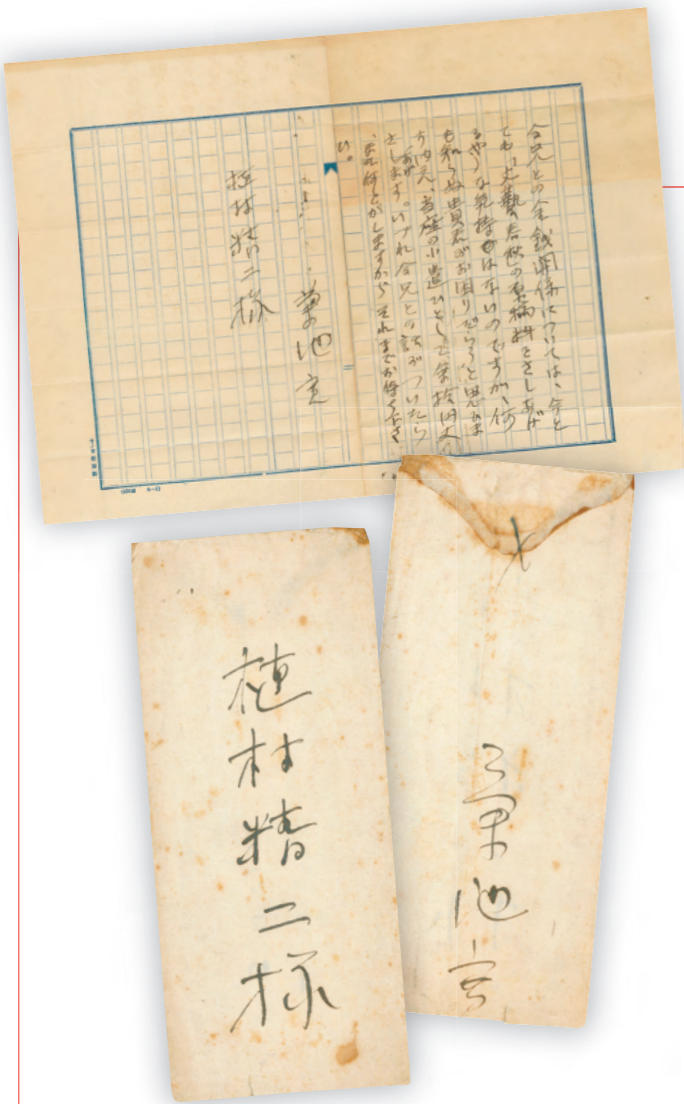 令兄との金銭関係については、今と
ても、文藝春秋の原稿料をさしあげ
るやうな気持ではないのですが、何
も知らぬ貴君がお困りだらうと思ひま
す故、当座の小遣ひとして金拾円丈
あげ
とします。いづれ令兄との話がついたら
、また何とかしますから それまでお待ち下さ
い。
菊池寛
植村精二様
植村精二様
〆
菊池寛